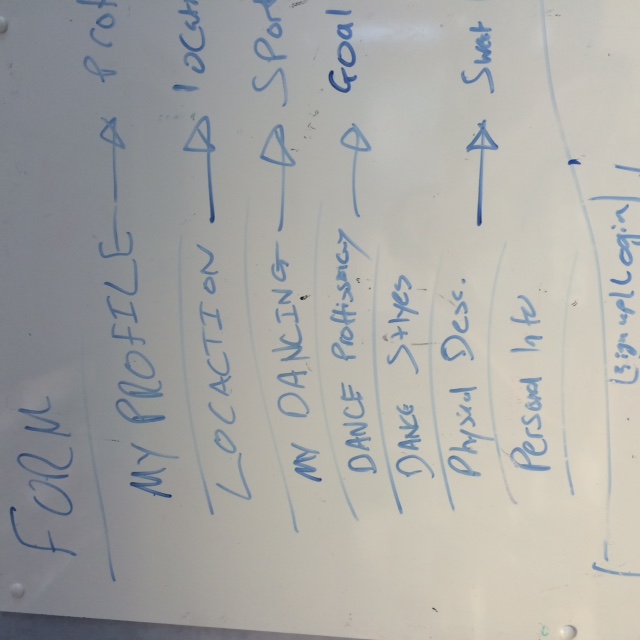 FORM
MY PROFILE → Prof
LOCACTION → locati
MY DANCING → Sport
DANCE Proffissency → Goal
DANCE Stlyes
Physical Desc. → Sweat
Personal Info
[sign up|Login]